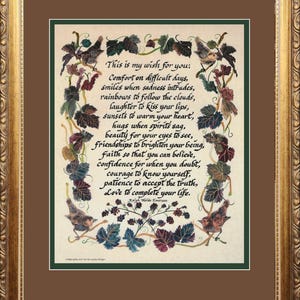 This is my wish for you:
Comfort on difficult days,
smiles when sadness intrudes,
rainbows to follow the clouds,
laughter to kiss your lips,
sunsets to warm your heart,
hugs when spirits sag,
beauty for your eyes to see,
friendships to brighten your being,
faith so that you can believe,
confidence for when you doubt,
courage to know yourself,
patience to accept the truth,
Love to complete your life.
Ralph Waldo Emerson